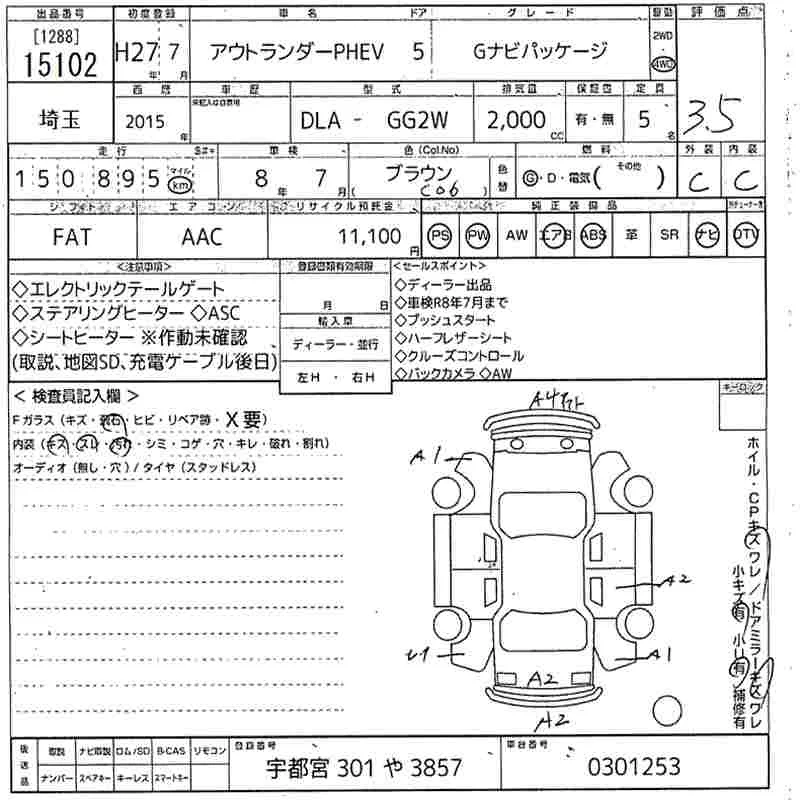 出品番号 初度登録 車名 ドア グレード 駆動 評価点
[1288] 15102 H27年 7月 アウトランダーPHEV 5 Gナビパッケージ 2WD・4WD 3.5
西暦 車歴 型式 排気量 保証書 定員
未記入は自家用
埼玉 2015年 DLA - GG2W 2,000cc 有・無 5名
走行 S#= 車検 色(Col.No) 燃料 外装 内装
150895 マイル km 8年 7月 ブラウン (C06) 色替 G・D・電気( その他 ) C C
シフト エアコン リサイクル預託金 純正装備品
FAT AAC 11,100円 PS PW AW エアB ABS 革 SR ナビ DTV
<注意事項> 登録書類有効期限 <セールスポイント>
◇エレクトリックテールゲート ◇ディーラー出品
◇ステアリングヒーター ◇ASC 月 日 ◇車検R8年7月まで
◇シートヒーター ※作動未確認 輸入車 ◇プッシュスタート
(取説、地図SD、充電ケーブル後日) ディーラー・並行 ◇ハーフレザーシート
◇クルーズコントロール
左H・右H ◇バックカメラ ◇AW
< 検査員記入欄 > キーロック
Fガラス (キズ・飛石・ヒビ・リペア跡・X要)
内装 (キズ・スレ・汚れ・シミ・コゲ・穴・キレ・破れ・割れ)
オーディオ (無し・穴) / タイヤ (スタッドレス)
A4
A1
A2
A1
A2
A2
ホイル・CPキズワレ/ドアミラーキズワレ
小キズ有 小U有 補修有
後送品 取説 ナビ取説 ロム/SD B-CAS リモコン 登録番号 車台番号
ナンバー スペアキー キーレス スマートキー 宇都宮 301 や 3857 0301253